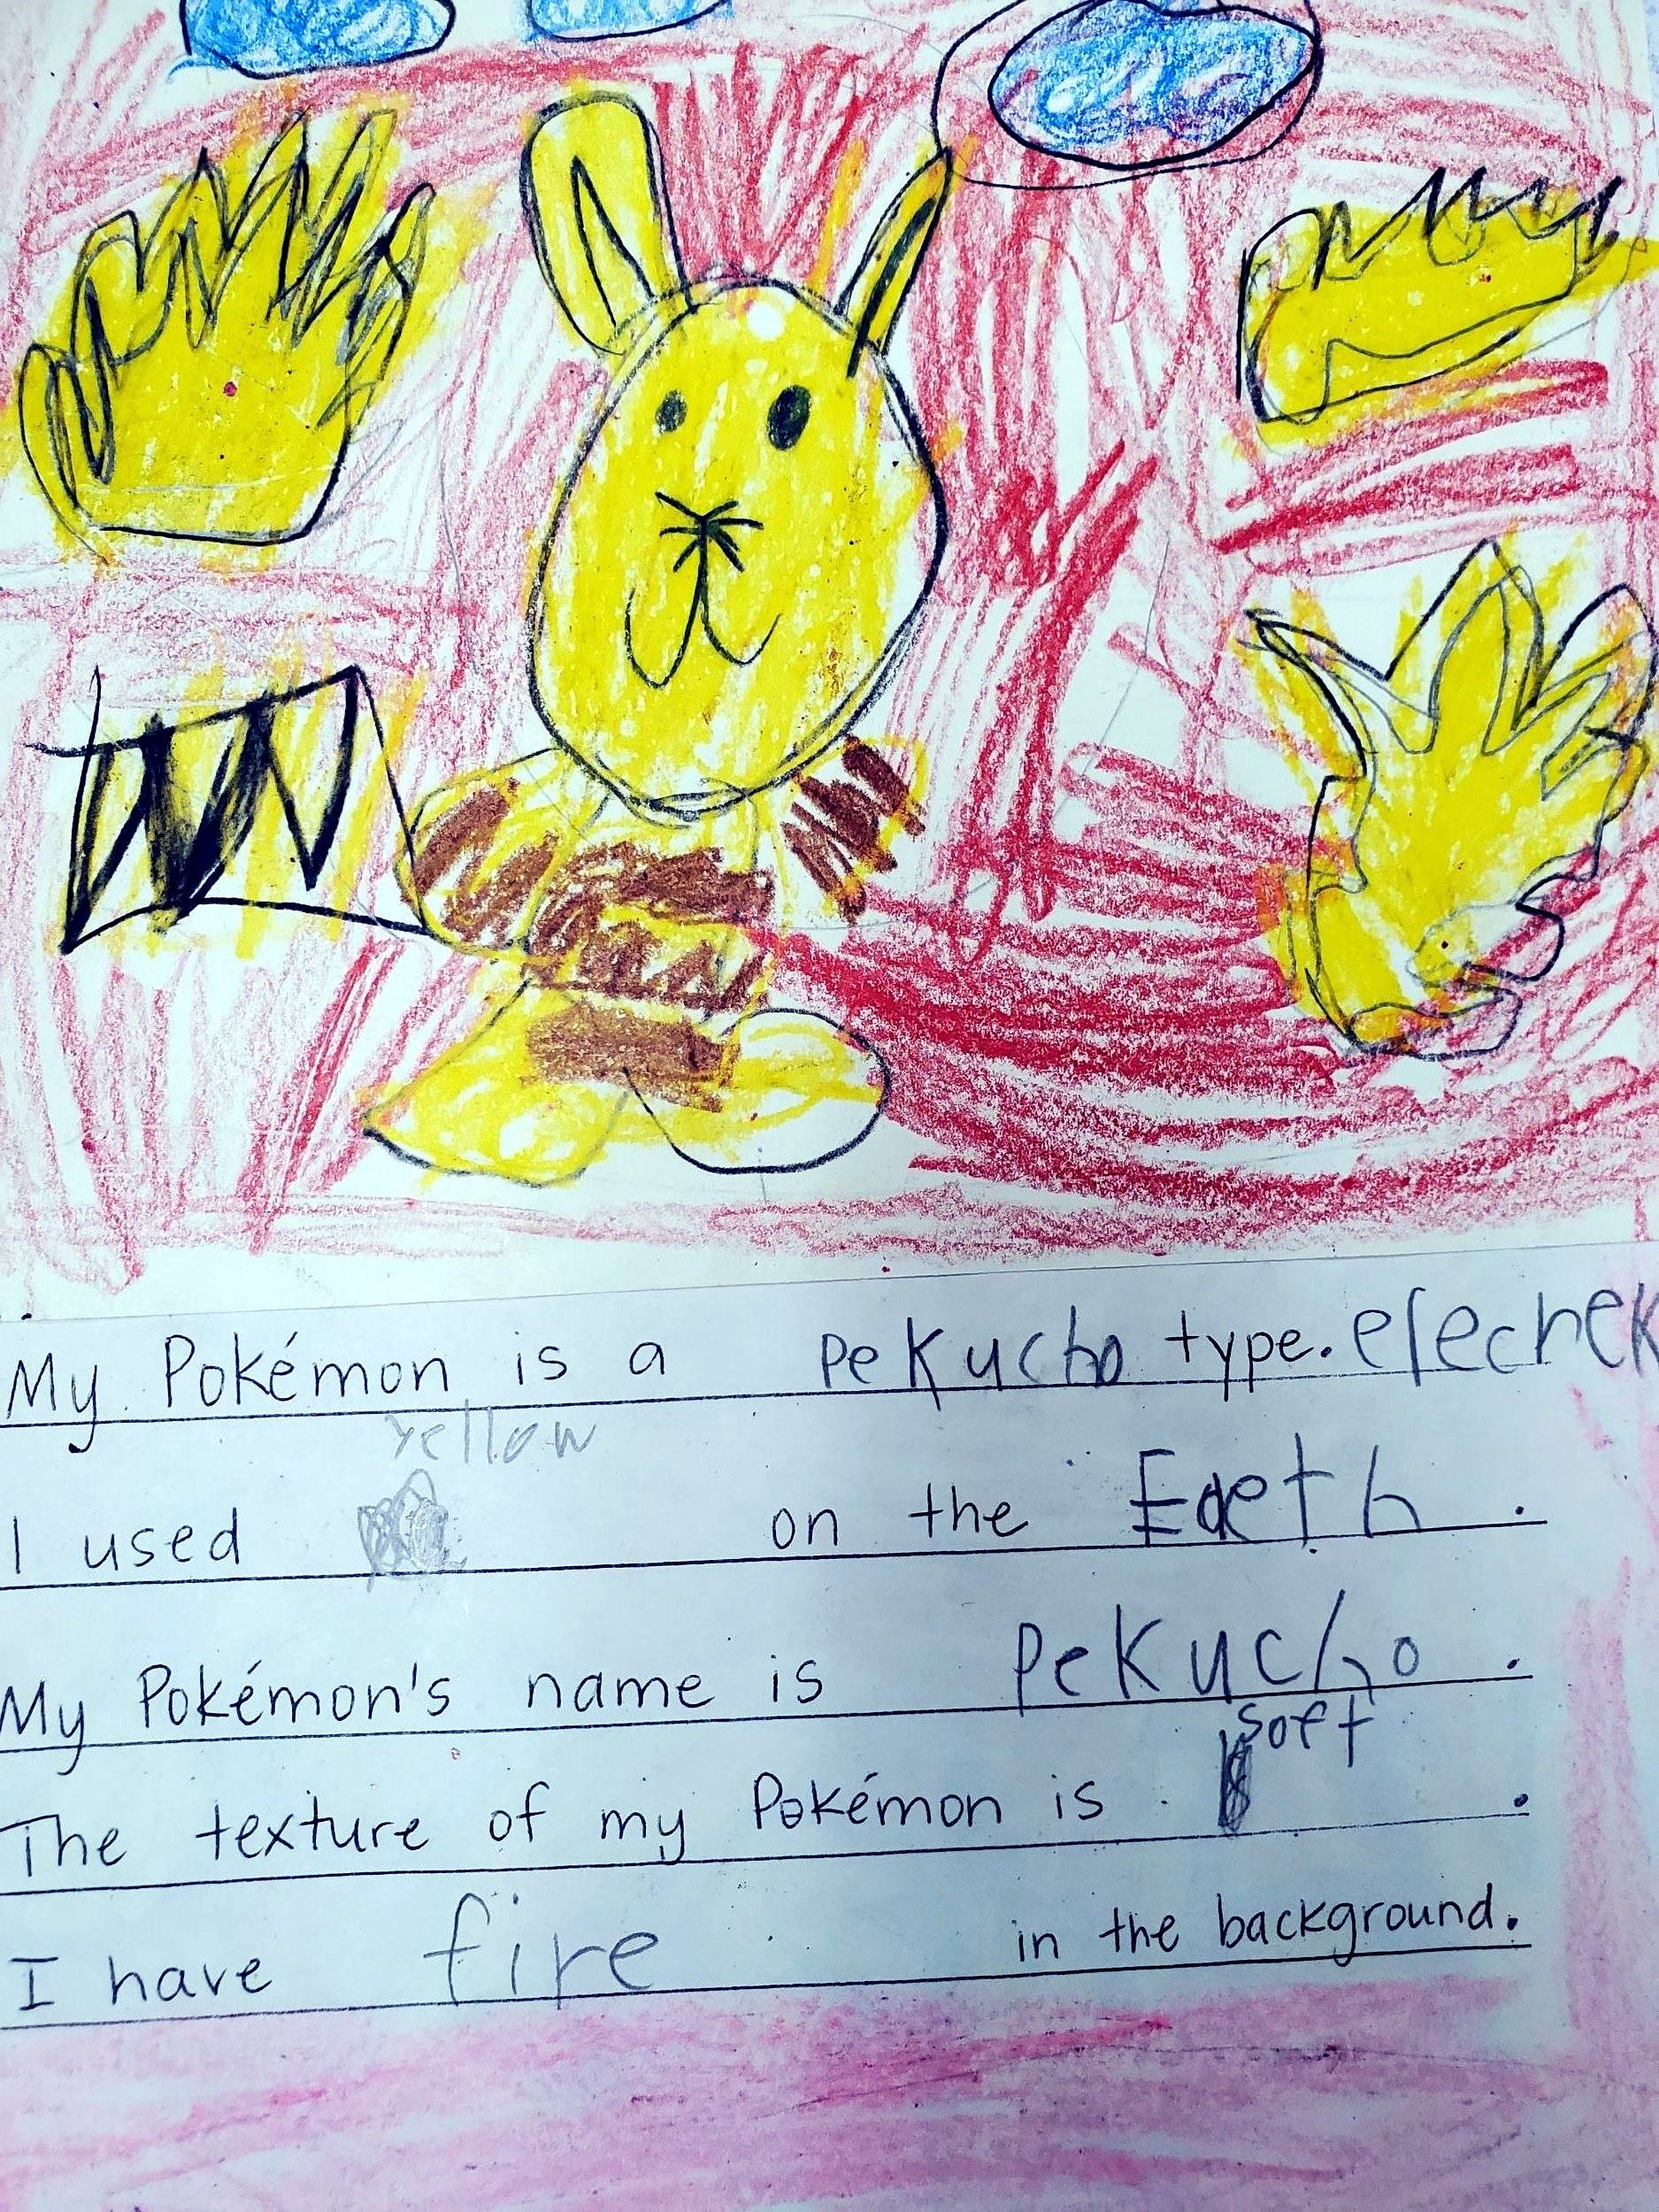 My Pokémon is a Pekucho type. elechek
yellow
I used on the Eaeth.
My Pokémon's name is Pekucho.
soft
The texture of my Pokémon is .
I have fire in the background.